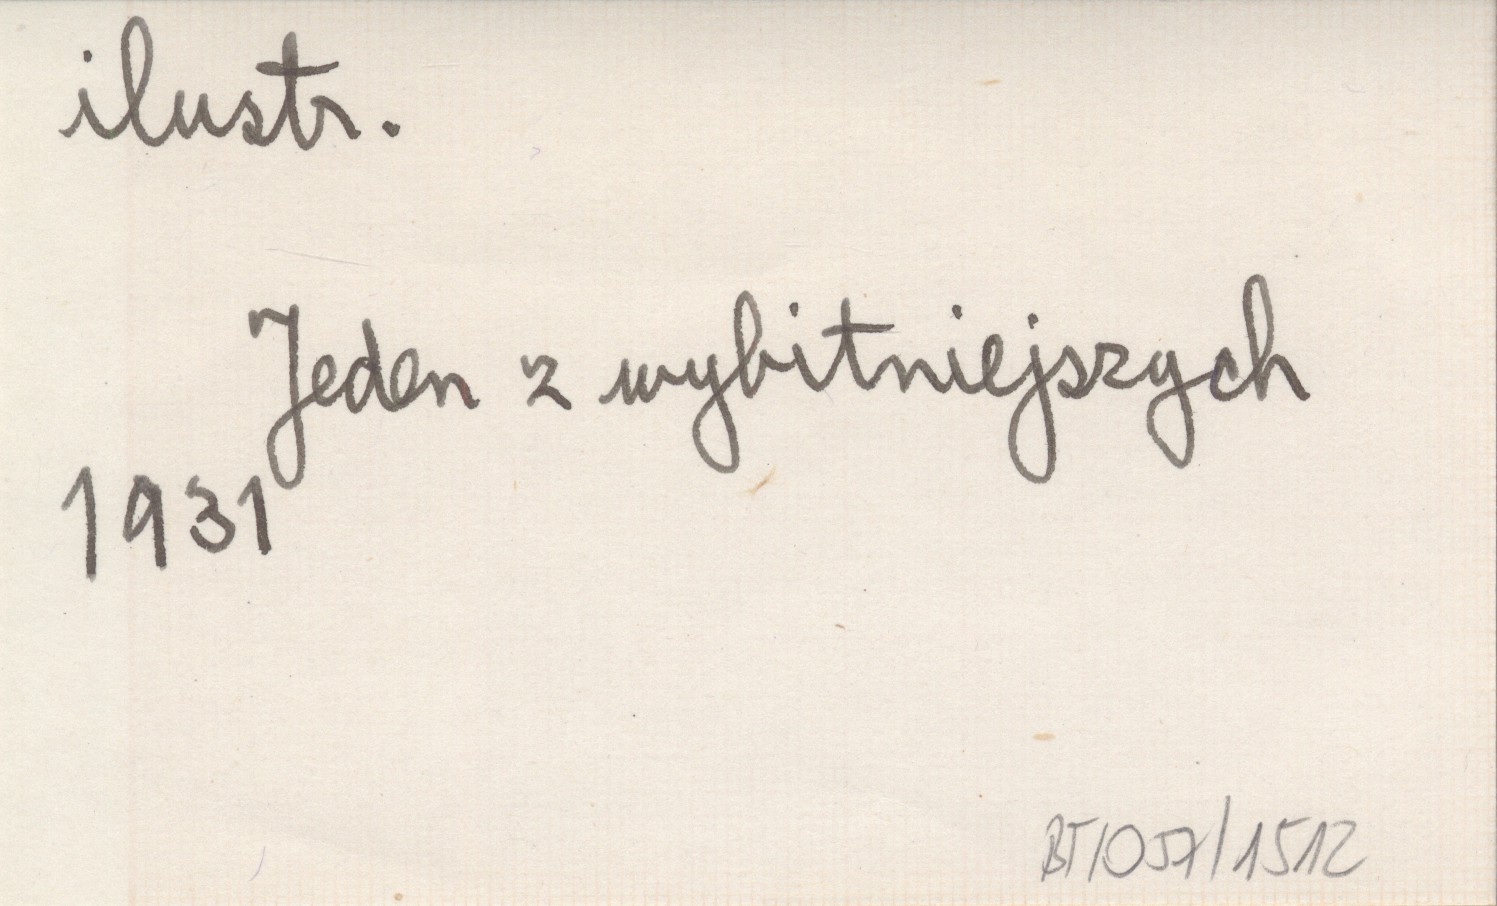 ilustr.
Jeden z wybitniejszych
1931
BT/057/1512